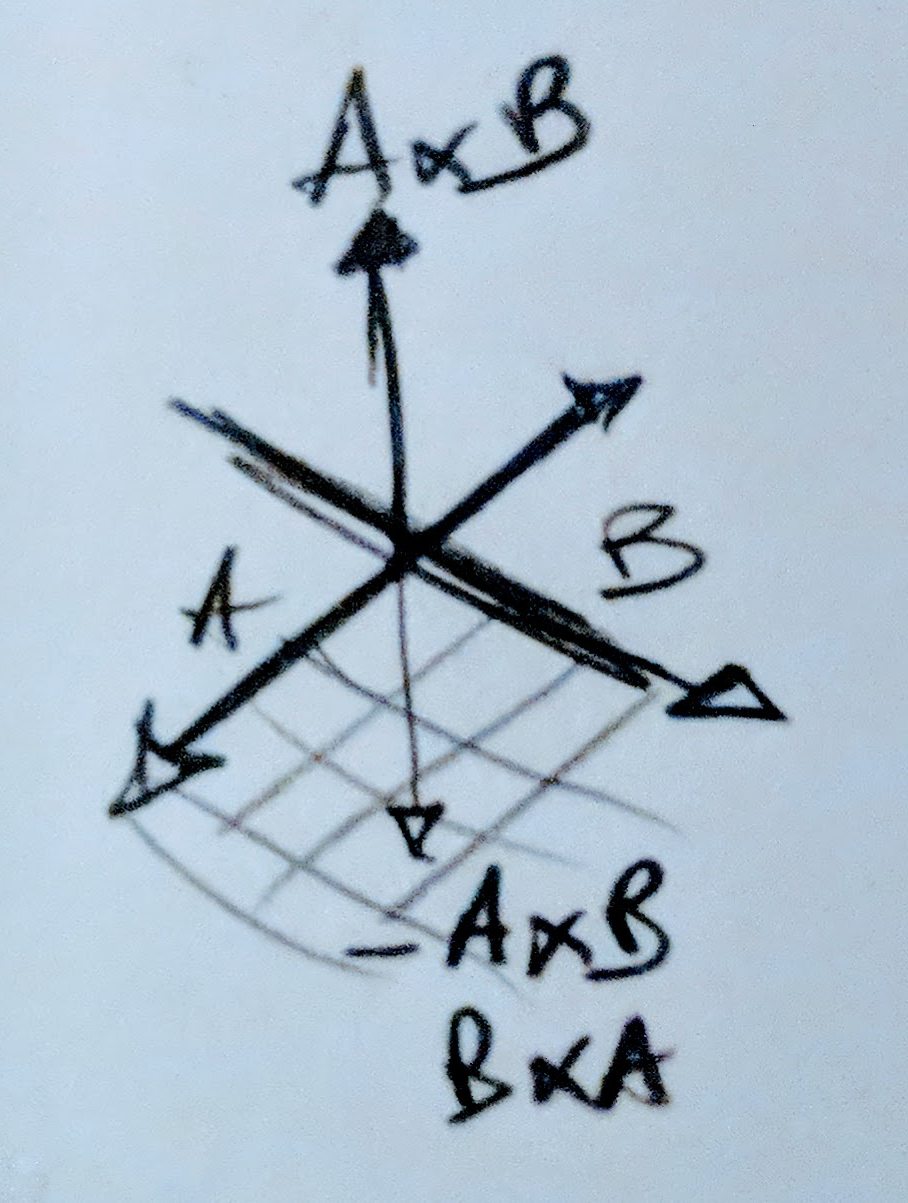 A×B
B
A
- A×B
B×A